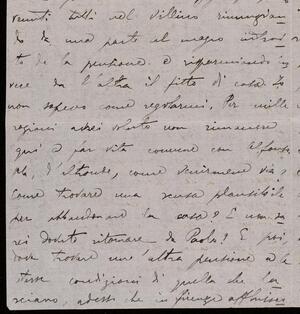 venuti tutti nel villino rinunzian
do da una parte al magro introi
to de la pensione. e risparmiando in
vece da l'altra il fitto di casa. Io
non sapevo come regolarmi. Per mille
ragioni avrei voluto non rimanere
qui a far vita comune con
da, d'altronde, come venirmene via,
Come trovare una scusa plausibile
per abbandonare la casa? E non sa
rei dovuto ritornare da Paolo? E poi
dove trovare un'altra pensione a le
stesse condizioni di quella che la
sciano, adesso che in Firenze